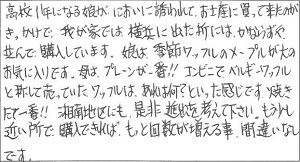 高校1年になる娘が、においに誘われて、お土産に買って来たのが
きっかけで、我が家では、横浜に出た折には、かならずと
並んで購入しています。娘は、季節ワッフルのメープルが大の
お気に入りです。母は、プレーンが一番!!コンビニでベルギーワッフル
と称して売っていたワッフルは、あれは何?といった感じです。焼き
たて一番!!湘南地区にも、是非進出を考えて下さい。もう少し
近い所で購入できれば、もっと回数が増える事、間違いなし
です。